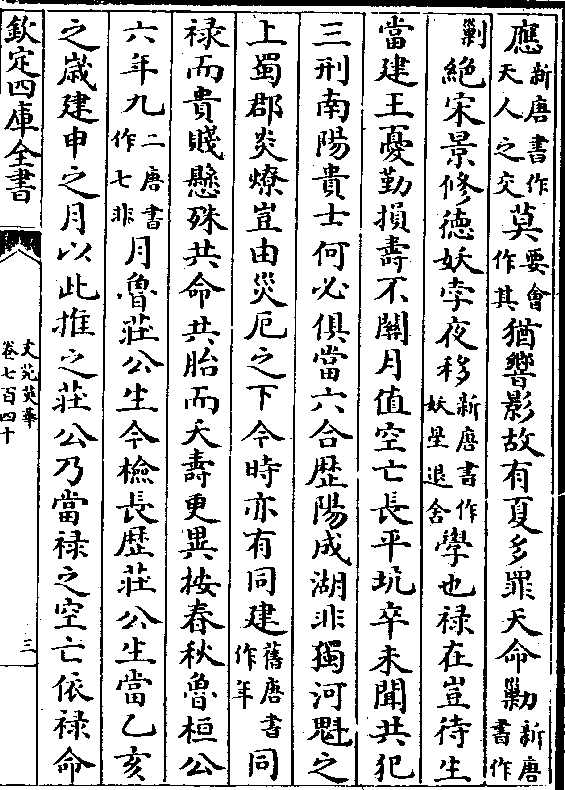 應新唐書作天人之交莫要會作其猶響影故有夏多罪天命勦新唐書作
剿絶宋景修德妖孛夜移新唐書作妖星退舍學也禄在豈待生
當建王憂勤損壽不關月值空亡長平坑卒未聞共犯
三刑南陽貴士何必俱當六合歴陽成湖非獨河魁之
上蜀郡炎燎豈由災厄之下今時亦有同建舊唐書作年同
禄而貴賤懸殊共命共胎而夭壽更異桉春秋魯桓公
六年九二唐書作七非月魯莊公生今檢長歴莊公生當乙亥
之歳建申之月以此推之莊公乃當禄之空亡依禄命
欽定四庫全書
文苑英華
卷七百四十
三